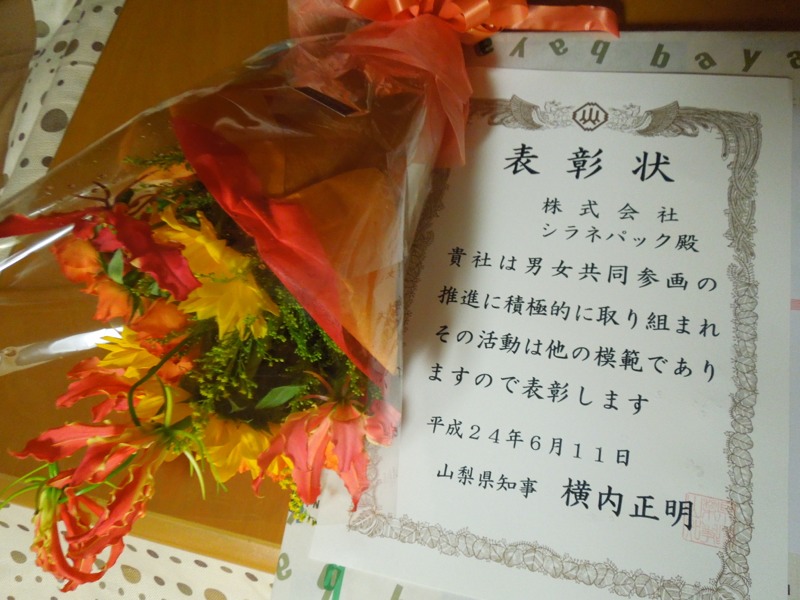 baya
表彰状
株式会社
シラネパック殿
貴社は男女共同参画の
推進に積極的に取り組まれ
その活動は他の模範であり
ますので表彰します
平成24年6月11日
山梨県知事 横内正明